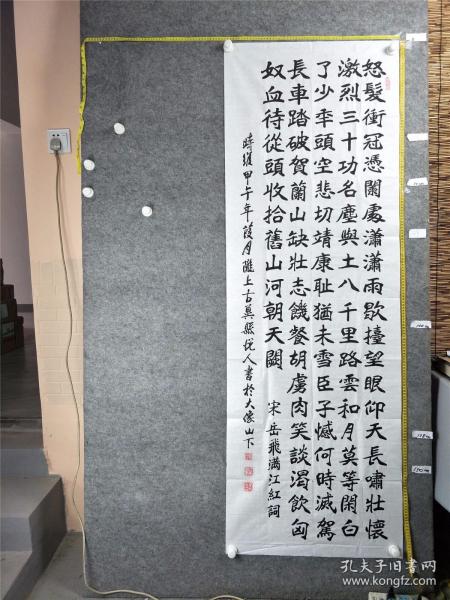 怒髮衝冠憑闌處瀟瀟雨歇擡望眼仰天長嘯壯懷
激烈三十功名塵與土八千里路雲和月莫等閑白
了少秊頭空悲切靖康耻猶未雪臣子憾何時滅駕
長車踏破賀蘭山缺壯志饑餐胡虜肉笑談渴飲匈
奴血待從頭收拾舊山河朝天闕
宋岳飛滿江紅詞
時維甲午年葭月隴上古冀縣悅人書於大像山下
孔夫子旧书网
www.kongfz.com